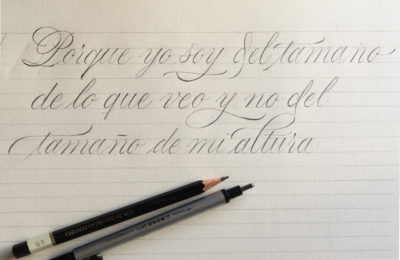 Porque yo soy del tamaño
de lo que veo y no del
tamaño de mi altura
MONO